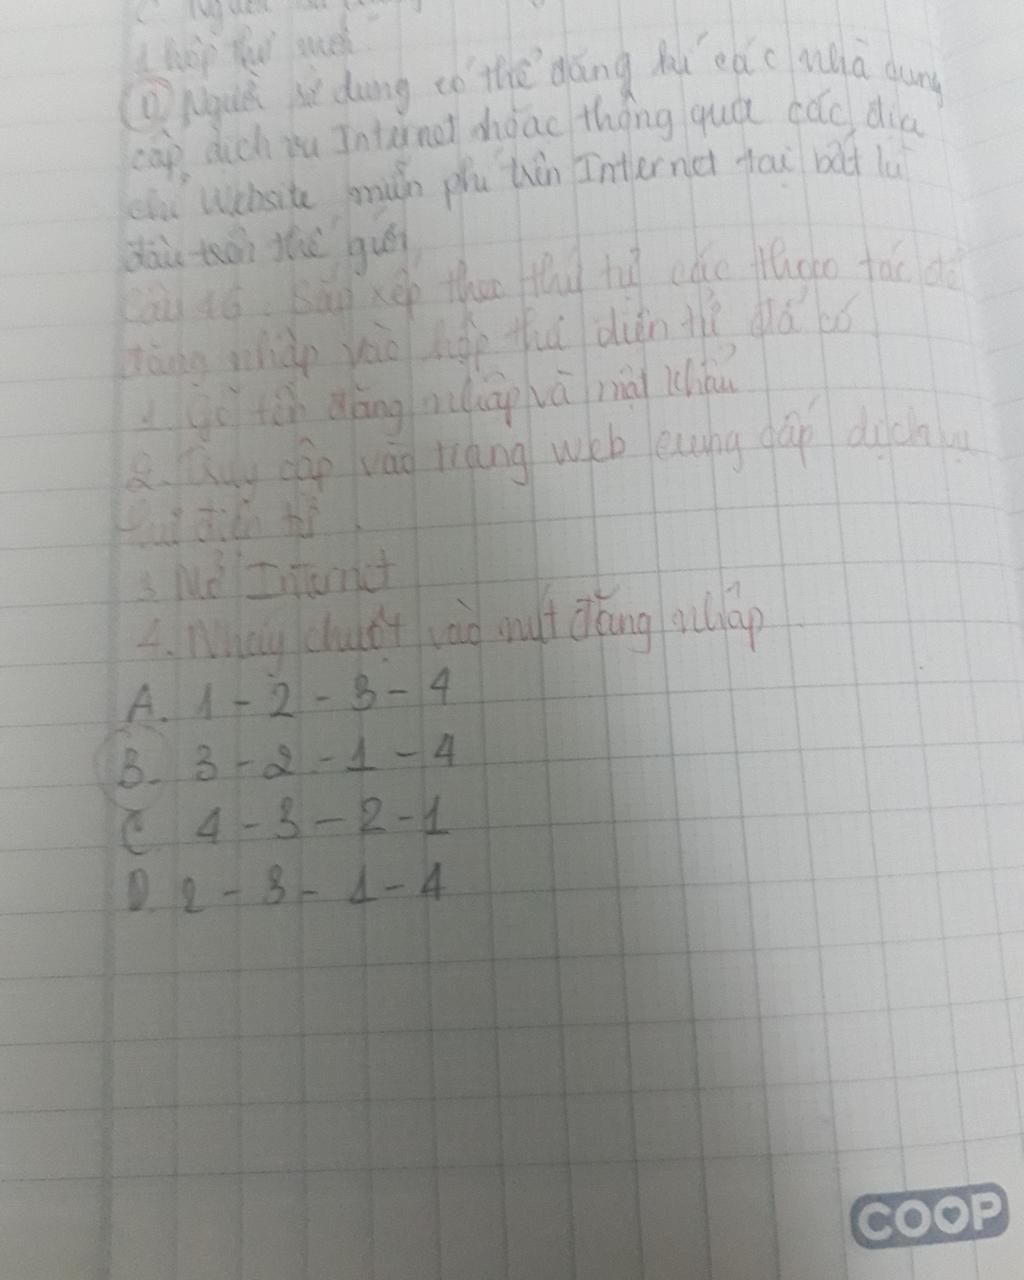 1 hộp thư mới
D Người sử dung có thể đăng kí các nhà dung
cấp dich vu Internet hoặc thông qua các địa
chỉ Website miễn phí trên Internet tai bất kì
đâu trên thế giới
Câu 16. Sắp xếp theo thứ tử các thao tác để
đăng nhập vào hộp thư điện tử đã có
1. Gõ tên đăng nhập và mật khẩu
2. Truy cập vào trang web cung cấp dịch vụ
thư điện tử.
3 Mở Internet
4. Nháy chuột vào nút đăng nhập
A. 1 - 2 - 3 - 4
B. 3 - 2 - 1 - 4
C 4 - 3 - 2 - 1
D. 2 - 3 - 1 - 4
COOP